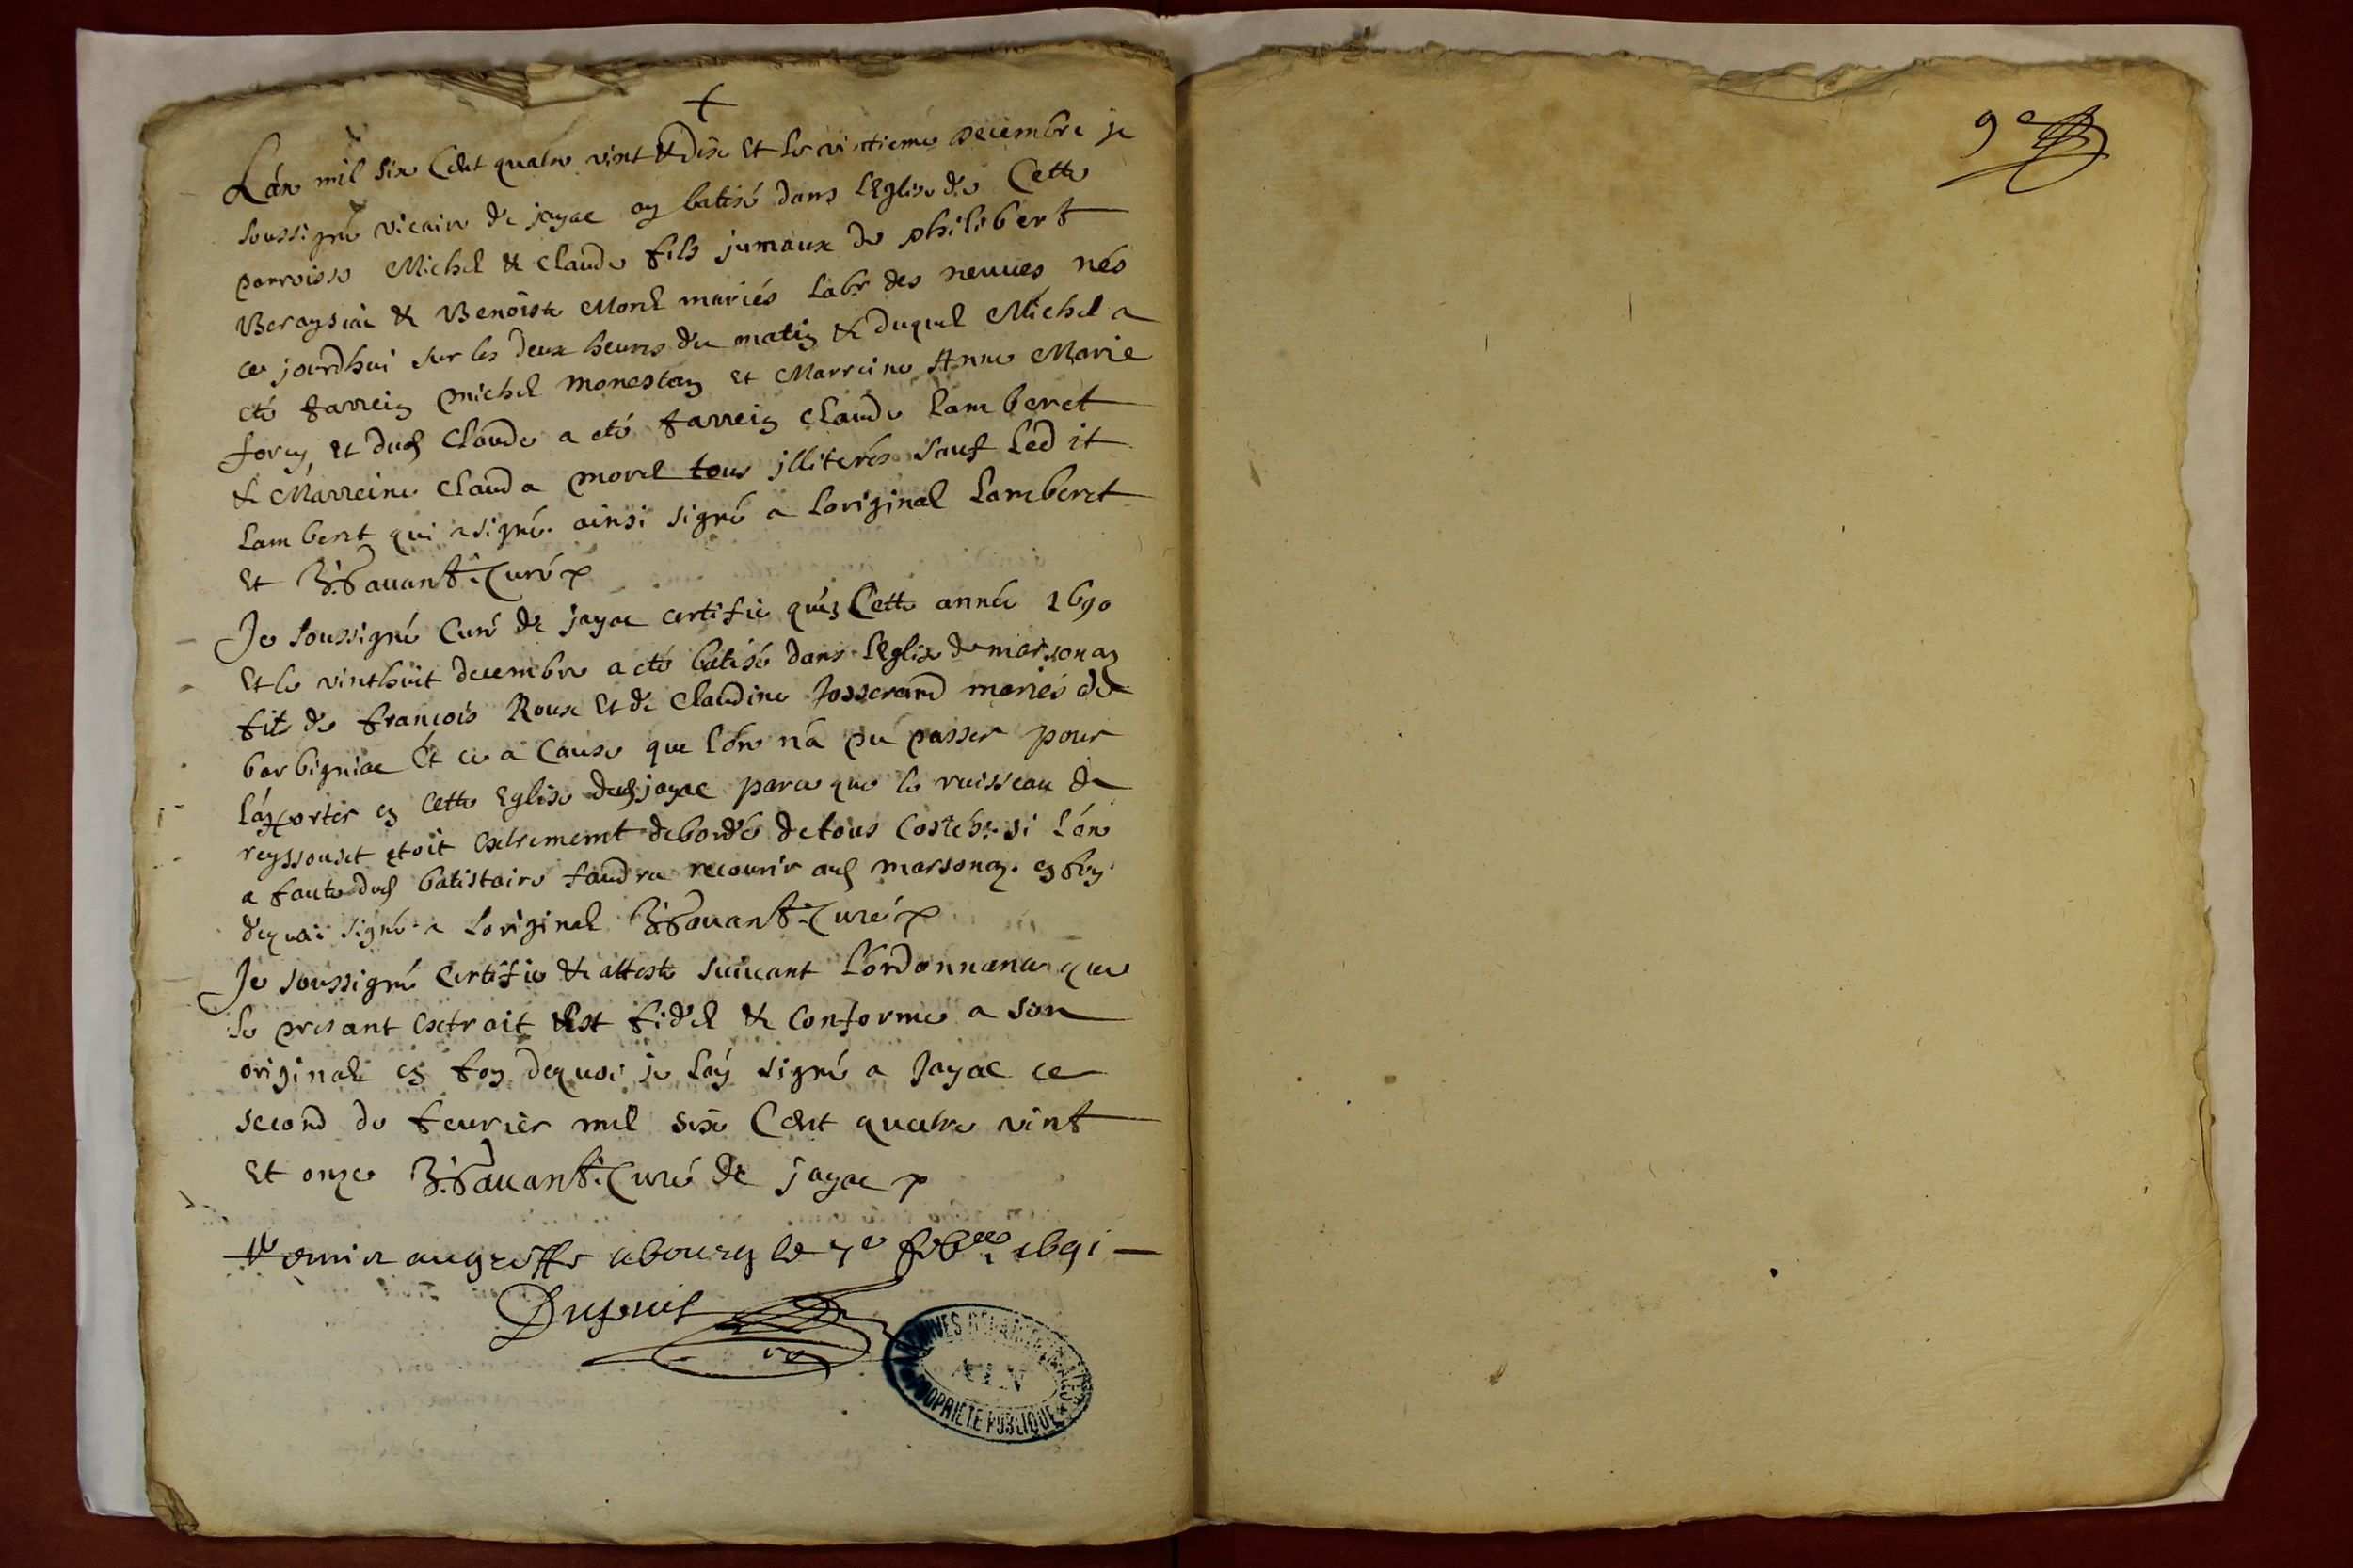 +
Lan mil six Cent quatre vint & dix et le vintieme Decembre je
soussigné vicaire de jayac ay batisé dans l'Eglise de Cette
parroisse Michel & Claude fils jumaux de philibert
& Benoiste Morel mariés labr des neuues nés
ce jourdhui sur les deux heures du matin & duquel Michel a
eté parrein Michel monestay et Marreine Anne Marie
forey, et dud Claude a eté parrein Claude Lamberet
& Marreine Clauda Morel tous jlliterés sauf led it
Lamberet qui a signé. ainsi signé a loriginal Lamberet
et Curé
Je soussigné Curé de jayac certifie qu'en Cette année 1690
et le vinthuit decembre a eté batisé dans l'Eglise de marsonay
fils de françois Roux et de Claudine Josserand mariés de
barbigniac et ce a Cause que l'on n'a pu passer pour
l'apporter en Cette Eglise dud jayac parce que le ruisseau de
reyssouset etoit extrememt debordé de tous Costés. si l'on
a faute dud batistaire faudra recourir aud marsonay. en foy
dequoi signé a loriginal Curé
Je soussigné Certifie & atteste suiuant l'ordonnance que
le presant extrait est fidel & Conforme a son
original en foy dequoi je l'ay signé a Jayac ce
second de feurier mil six Cent quatre vint
et onze Curé de jayac
Remis au greffe a bourg le 7e 1691
9e
ARCHIVES DÉPARTEMENTALES
AIN
PROPRIÉTÉ PUBLIQUE